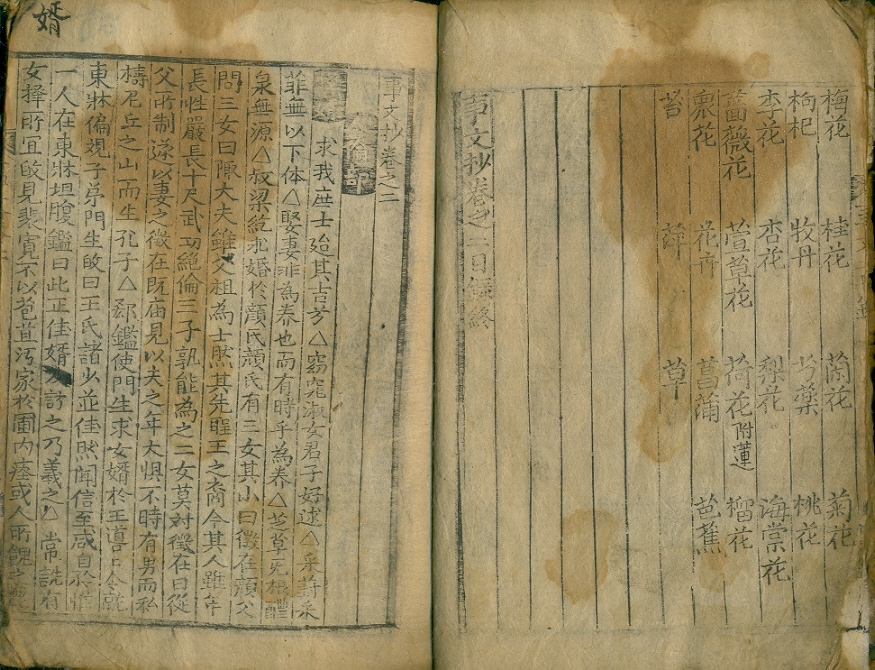 梅花 桂花 蘭花 菊花
枸杞 牧丹 芍藥 桃花
李花 杏花 梨花 海棠花
薔薇花 萱草花 荷花附蓮 榴花
衆花 花卉 菖蒲 芭蕉
苔 萍 草
事文抄卷之二目錄終
事文抄卷之二
求我庶士迨其吉兮△窈窕淑女君子好逑△采葑采
菲無以下体△娶妻非為养也而有時乎為养△芝草无根醴
泉無源△叔梁紇求婚於顔氏顔氏有三女其小曰徵在顔父
問三女曰陬大夫雖父祖為士然其先聖王之裔今其人雖年
長性嚴長十尺武功絶倫三子孰能為之二女莫対徵在曰從
父所制遂以妻之徵在既庙見以夫之年大惧不時有男而私
檮尼丘之山而生孔子△郄鑑使門生求女婿於王導令就
東牀偏覌子弟門生皈曰王氏諸少並佳然闻信至咸自矜惟
一人在東牀坦腹鑑曰此正佳婿訪之乃羲之△韋詵有
女擇所宜皈見裴寬不以苞苴汚家於圃内瘞或人所餽之鹿
婿